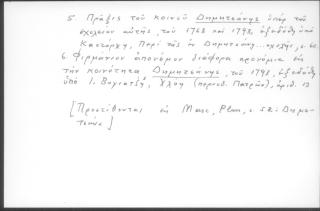 5. Πράξις τοῦ κοινοῦ Δημητσάνης ὑπὲρ τοῦ
σχολείου αὐτῆς, τοῦ 1768 καὶ 1798, ἐξεδόθη ὑπὸ
Καστόρχη, Περὶ τῆς ἐν Δημητσάνῃ... σχολῆς, σ. 
6. Φιρμάνιον ἀπονέμον διάφορα προνόμια εἰς
τὴν κοινότητα Δημητσάνης, τοῦ 1798, ἐξεδόθη
ὑπὸ (περιοδ. Πατρῶν), ἀριθ. 13
[Προστίθενται εἰς σ. 52: Δημη-
τσάνα]